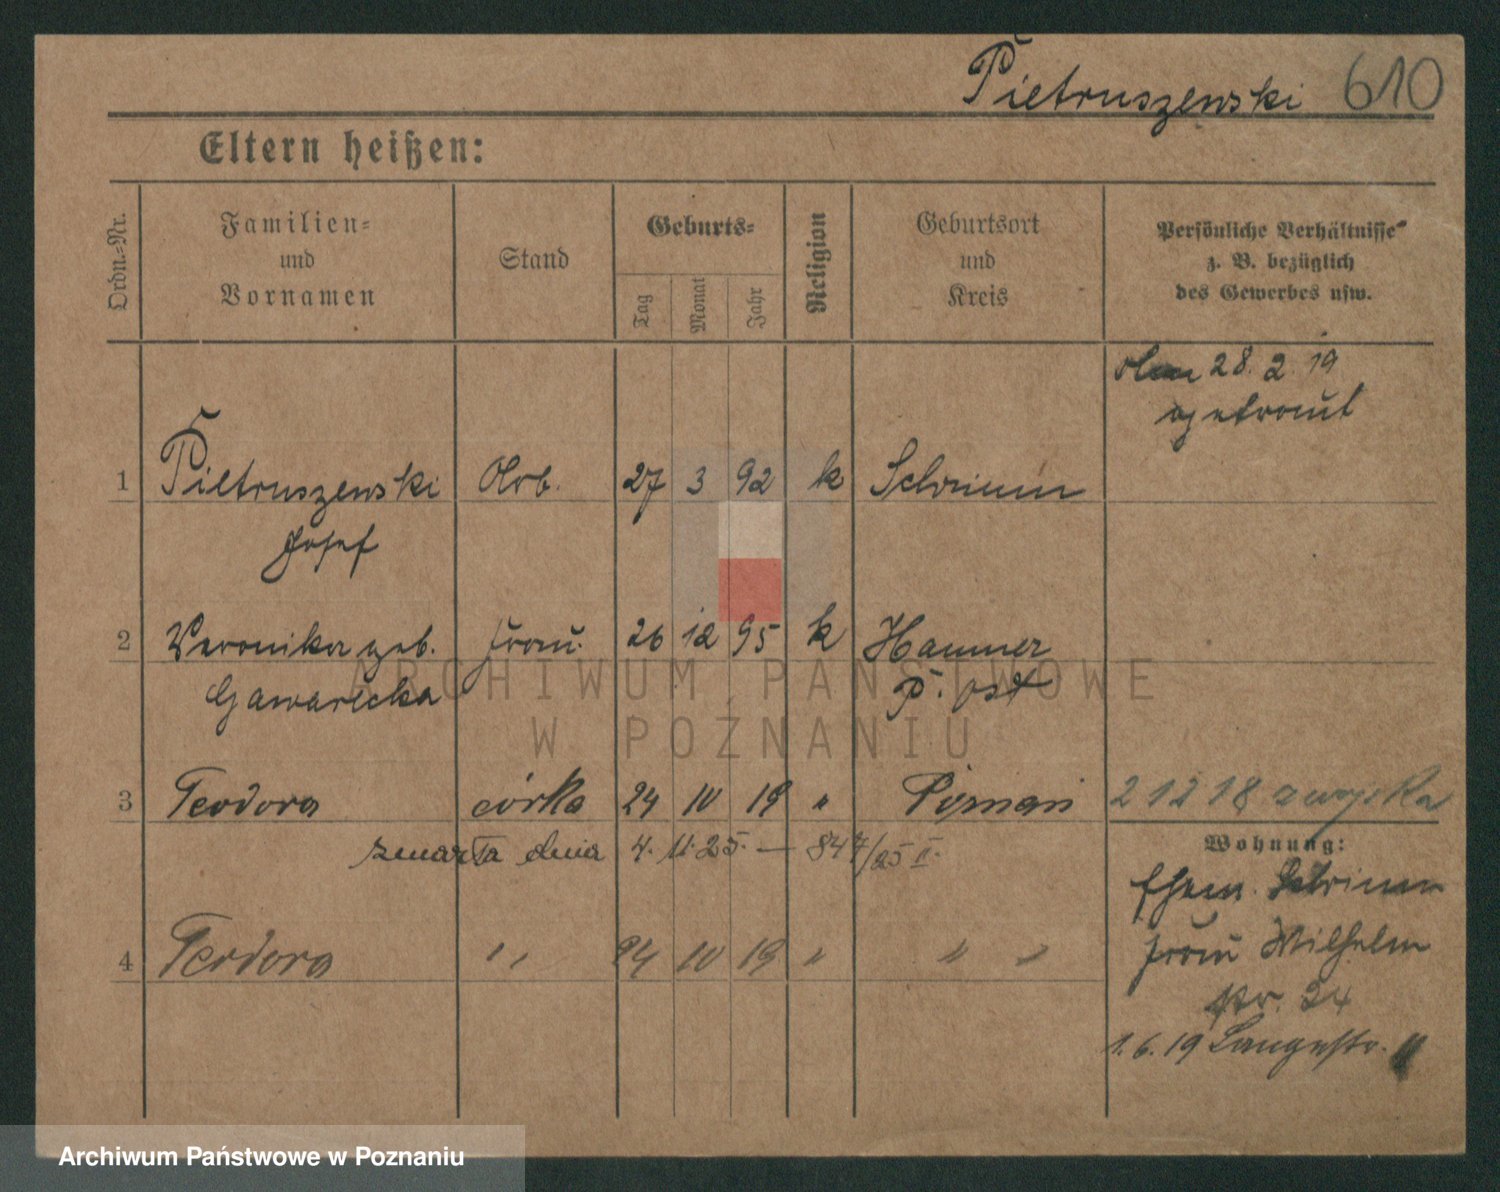 Pietruszewski 610
Eltern heißen:
Ordn.-Nr.
Familien- und Vornamen
Stand
Geburts-
Tag
Monat
Jahr
Religion
Geburtsort und Kreis
Persönliche Verhältnisse z. B. bezüglich des Gewerbes usw.
28. 2. 19
getraut
1 Pietruszewski Arb. 27 3 92 k Schrimm
Josef
2 Veronika geb. Frau 26 12 95 k Hammer
Gawarecka P. Ost
3 Teodora córka 24 10 19 " Poznań
2 12 18
zmarła dnia 4. 11. 25. — 847/25 II.
Wohnung:
Ehem. Schrimm
Frau Wilhelm
str. 24
4 Teodora " 24 10 19 " " "
1. 6. 19 Langestr.
ARCHIWUM PAŃSTWOWE
W POZNANIU
Archiwum Państwowe w Poznaniu